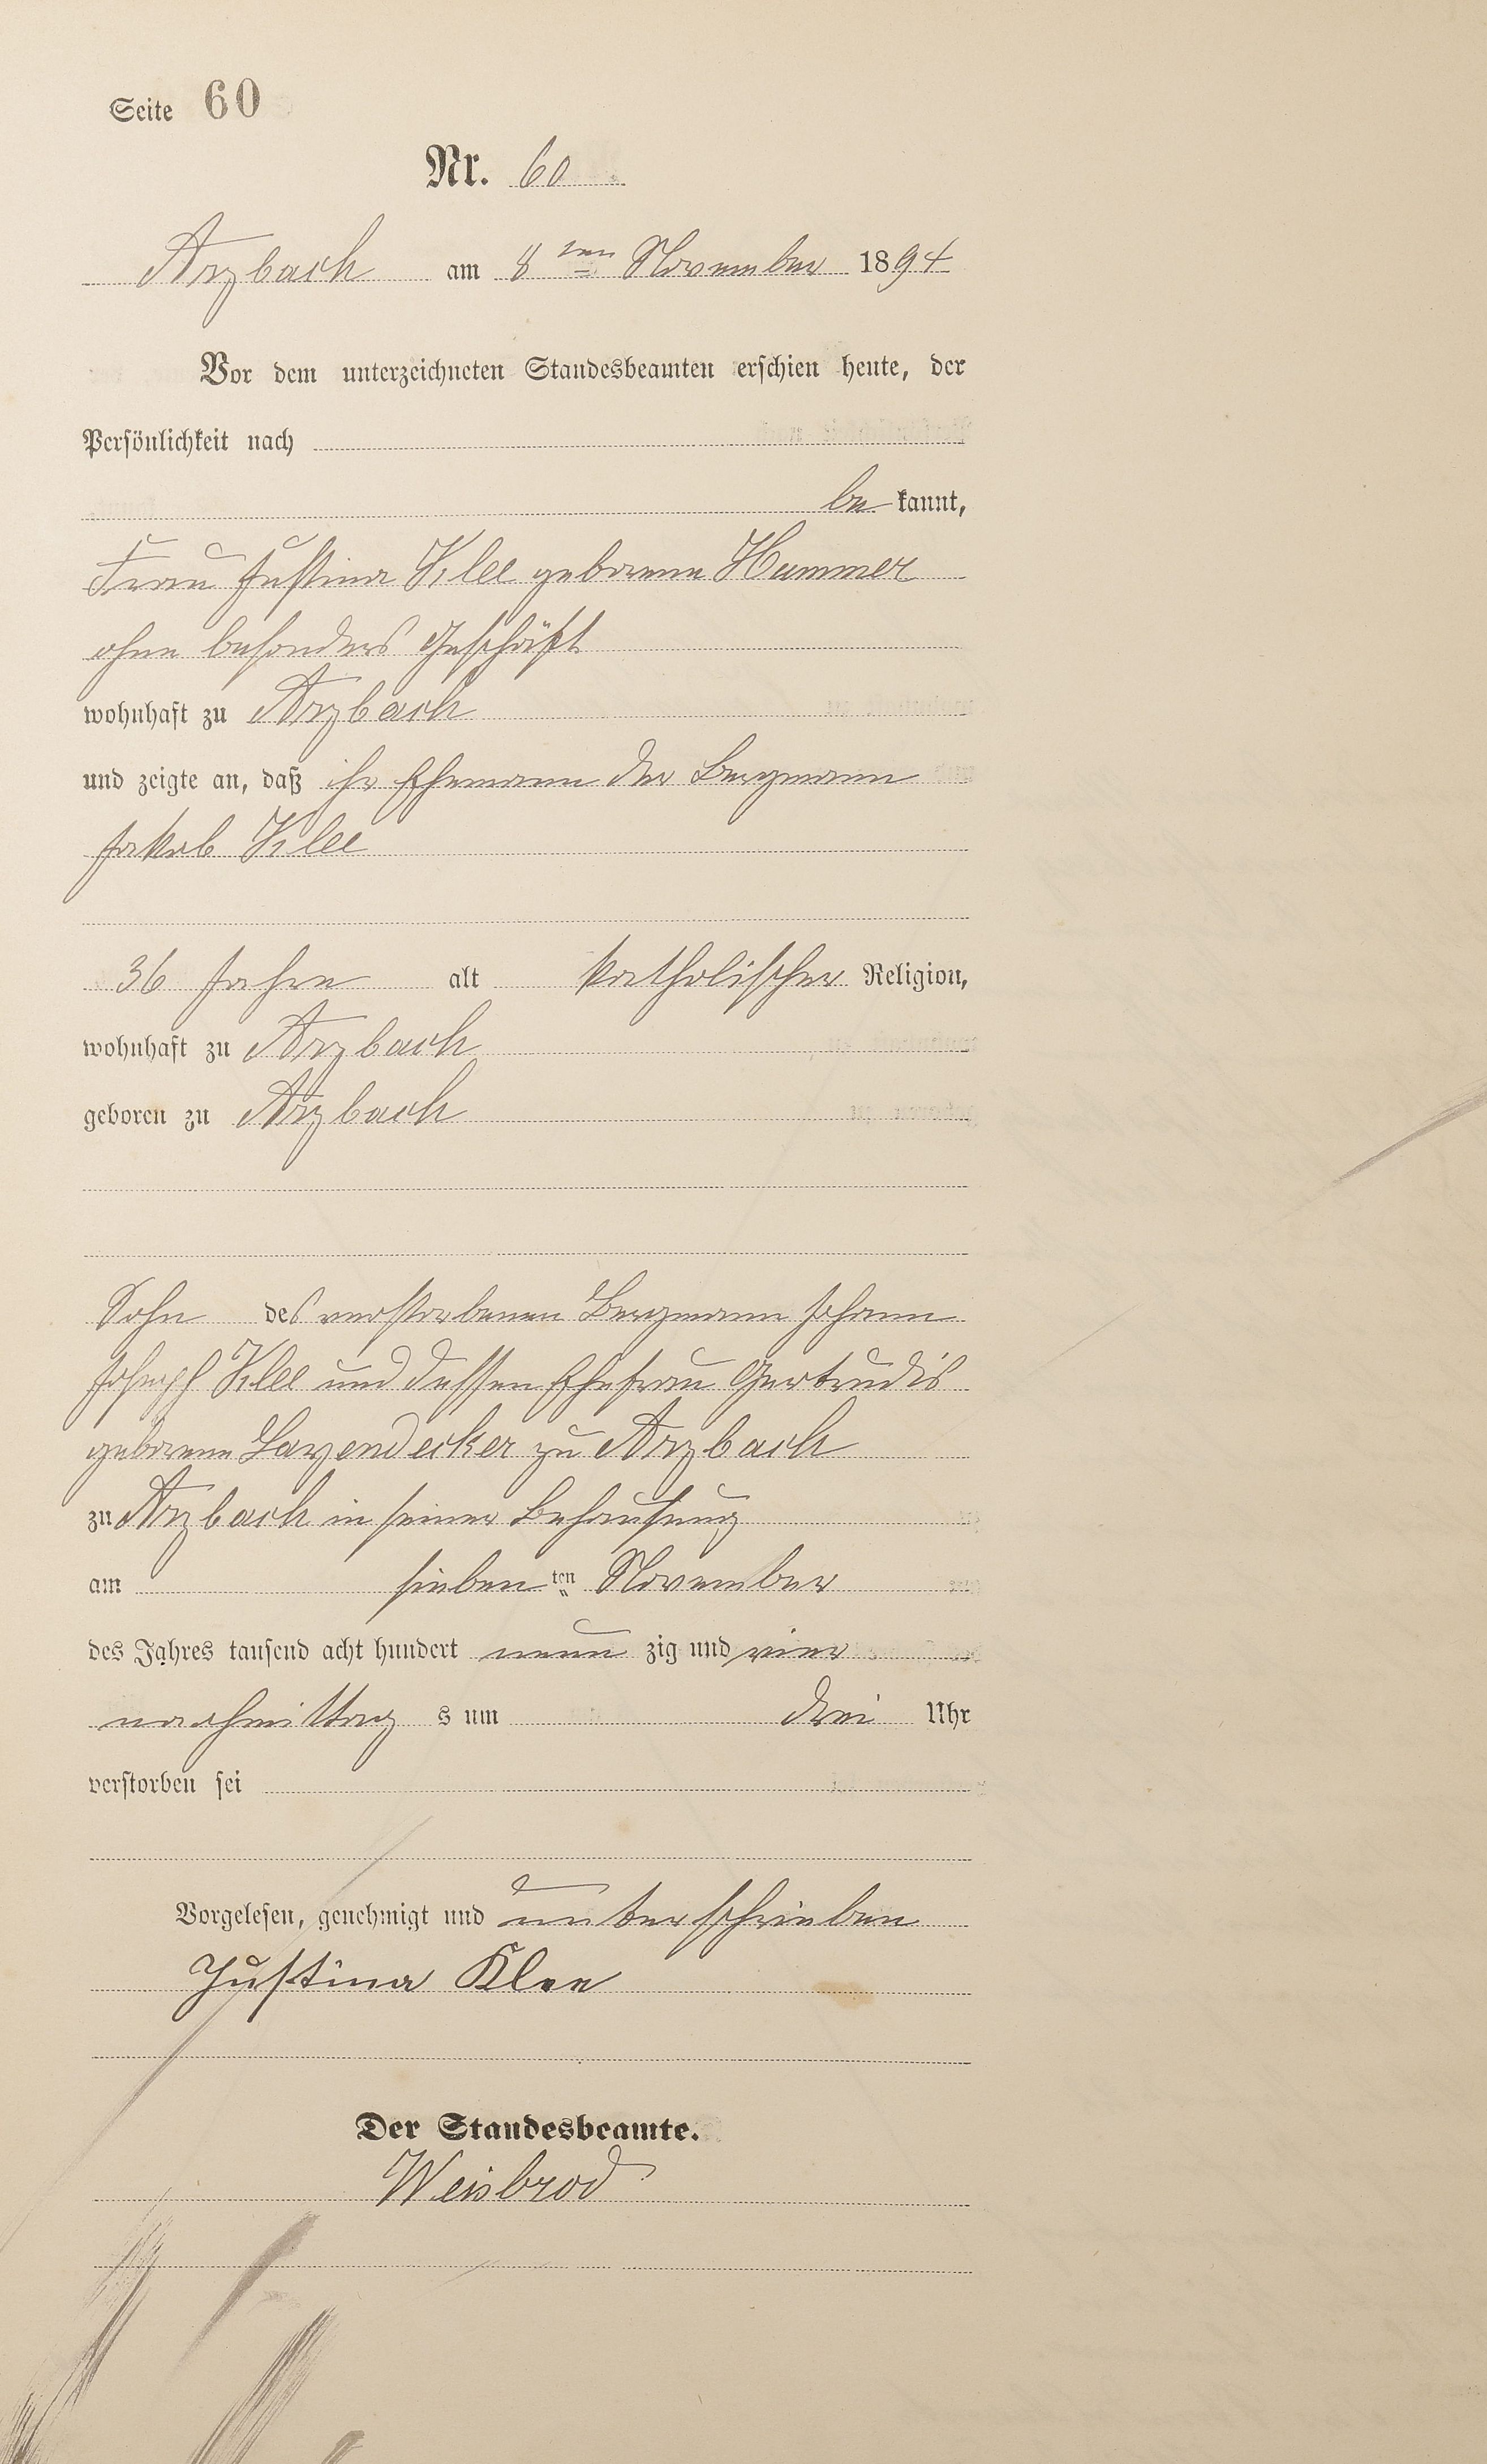 Seite 60
Nr. 60
Arzbach am 8ten November 1894
Vor dem unterzeichneten Standesbeamten erschien heute, der
Persönlichkeit nach
be kannt,
Frau Justina Klee geborene Hummer
ohne besonders Geschäft
wohnhaft zu Arzbach
und zeigte an, daß ihr Ehemann der Bergmann
Jakob Klee
36 Jahre alt katholischer Religion,
wohnhaft zu Arzbach
geboren zu Arzbach
Sohn des verstorbenen Bergmann Johann
Joseph Klee und dessen Ehefrau Gertrudis
geborene Layendecker zu Arzbach
zu Arzbach in seiner Behausung
am siebenten November
des Jahres tausend acht hundert neun zig und vier
nachmittag s um drei Uhr
verstorben sei
Vorgelesen, genehmigt und unterschrieben
Justina Klee
Der Standesbeamte.
Weisbrod